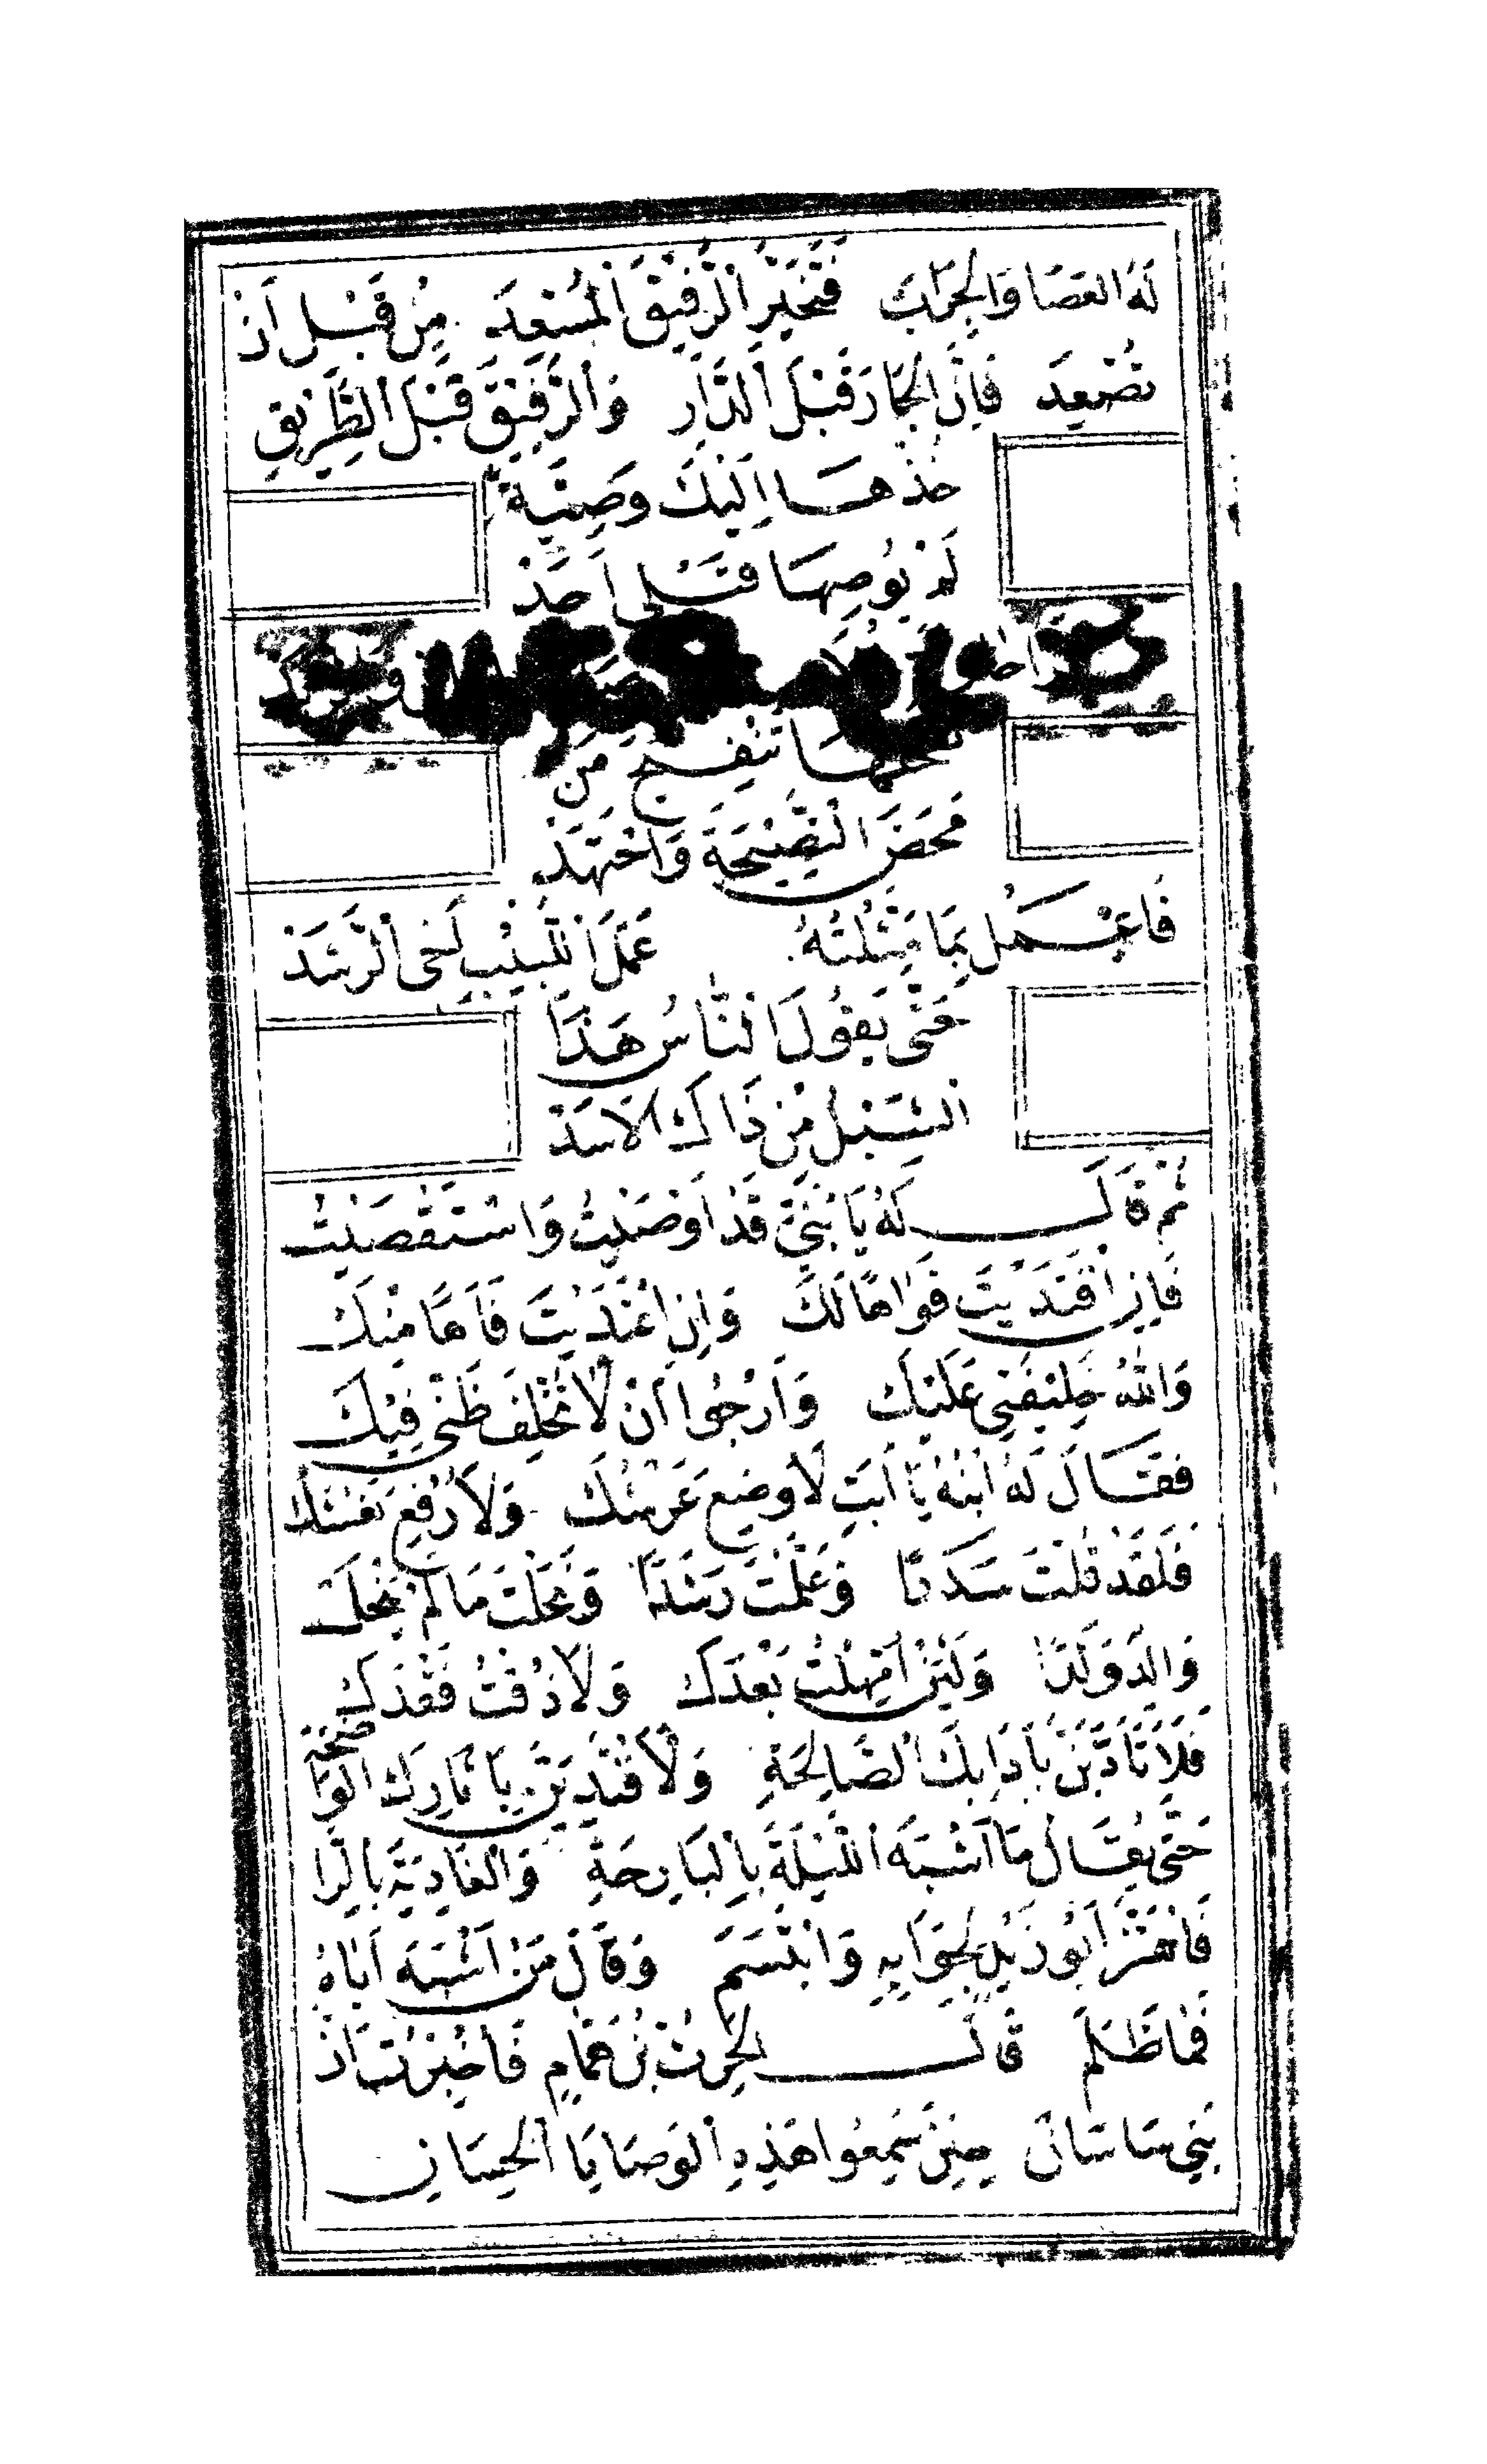 لَهُ العَصَا وَالجِرَابَ فَتَخَيَّرِ الرَّفِيْقَ الْمُسْعِدَ مِنْ قَبْلِ اَنْ
تُصْعِدَ فَاِنَّ الجَارَ قَبْلَ الدَّارِ وَالرَّفِيْقَ قَبْلَ الطَّرِيْقِ
خُذْهَا اِلَيْكَ وَصِيَّةً
لَمْ يُوصِهَا قَبْلِي اَحَدْ
تَنْقِيحَ مَنْ
مَحَضَ النَّصِيْحَةَ وَاجْتَهَدْ
فَاعْمَلْ بِمَا مَثَّلْتُهُ عَمَلَ اللَّبِيْبِ اَخِي الرَّشَدْ
حَتّٰى يَقُولَ النَّاسُ هَذَا
الشِّبْلُ مِنْ ذَاكَ الاَسَدْ
ثُمَّ قَالَ لَهُ يَا بُنَيَّ قَدْ اَوْصَيْتُ وَاسْتَقْصَيْتُ
فَاِنِ اقْتَدَيْتَ فَوَاهًا لَكَ وَاِنِ اعْتَدَيْتَ فَآهًا مِنْكَ
وَاللهُ خَلِيْفَتِي عَلَيْكَ وَاَرْجُوا اَنْ لاَ تُخْلِفَ ظَنِّي فِيْكَ
فَقَالَ لَهُ ابْنُهُ يَا اَبَتِ لاَ وُضِعَ عَرْشُكَ وَلاَ رُفِعَ نَعْشُكَ
فَلَقَدْ قُلْتَ سَدَدًا وَعَلَّمْتَ رَشَدًا وَنَحَلْتَ مَا لَمْ يَنْحَلْ
وَالِدٌ وَلَدًا وَلَئِنْ اُمْهِلْتُ بَعْدَكَ وَلاَ ذُقْتُ فَقْدَكَ
فَلاَتَاَدَّبَنَّ بِآدَابِكَ الصَّالِحَةِ وَلاَقْتَدِيَنَّ بِآثَارِكَ الوَاضِحَةِ
حَتّٰى يُقَالَ مَا اَشْبَهَ اللَّيْلَةَ بِالبَارِحَةِ وَالغَادِيَةَ بِالرَّا
فَاهْتَزَّ اَبُو زَيْدٍ لِجَوَابِهِ وَابْتَسَمَ وَقَالَ مَنْ اَشْبَهَ اَبَاهُ
فَمَا ظَلَمَ قَالَ الحَرِثُ بْنُ هَمَّامٍ فَاُخْبِرْتُ اَنَّ
بَنِي سَاسَانَ حِيْنَ سَمِعُوا هَذِهِ الوَصَايَا الحِسَانَ